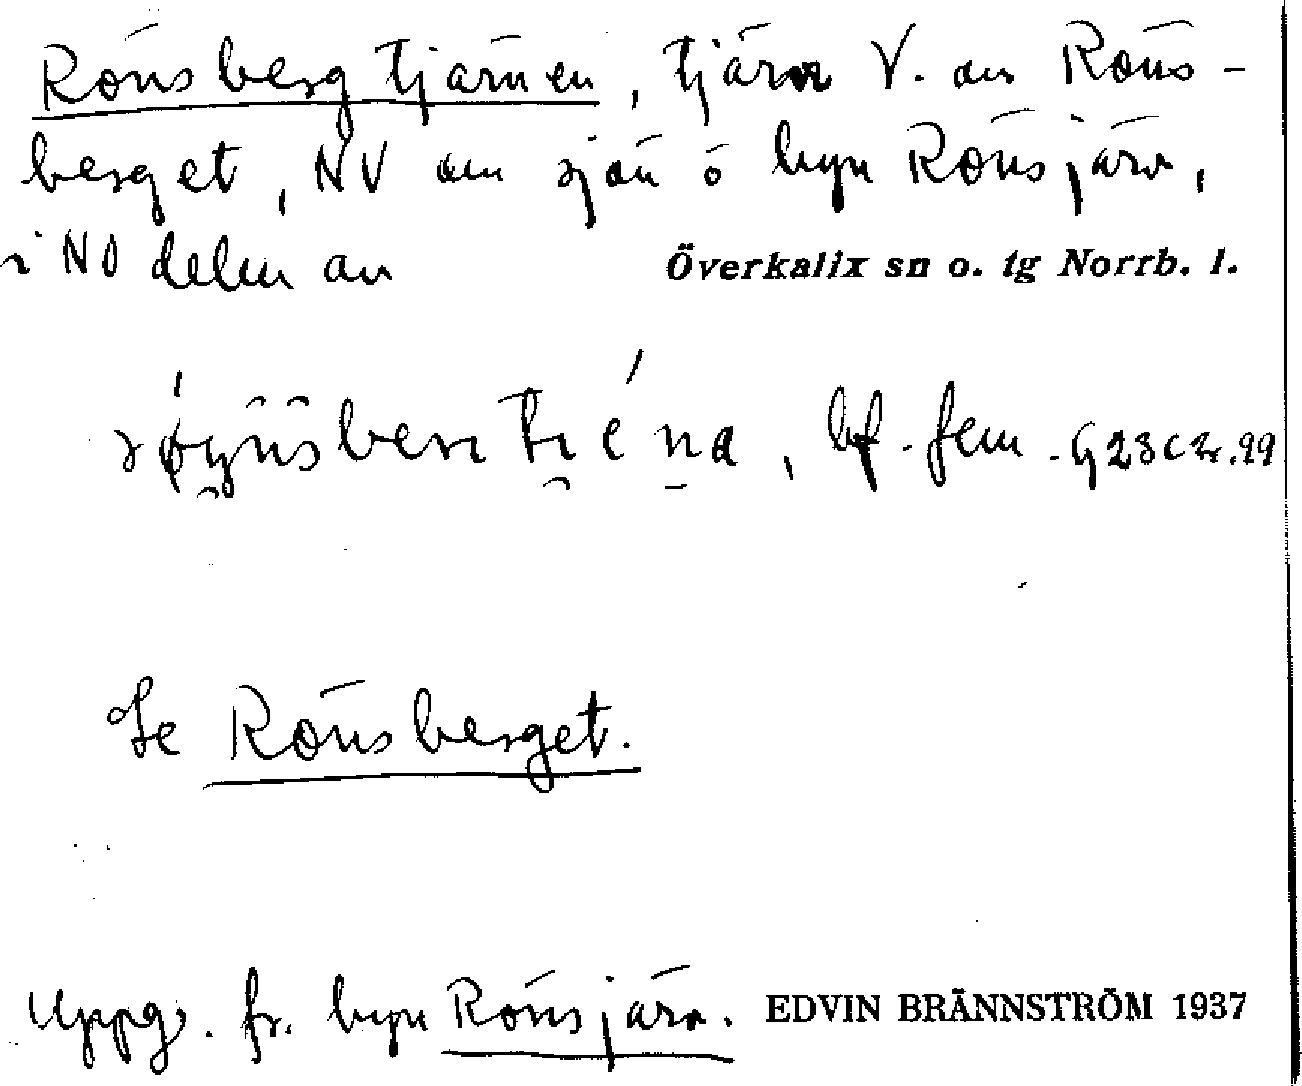 Rönsbergtjärnen, tjärn V. om Röns-
berget, NV om sjön o byn Rönsjärv,
i NO delen av Överkalix sn o. tg Norrb. l.
bf. fem.
Se Rönsberget.
Uppg. fr. byn Rönsjärv. EDVIN BRÄNNSTRÖM 1937